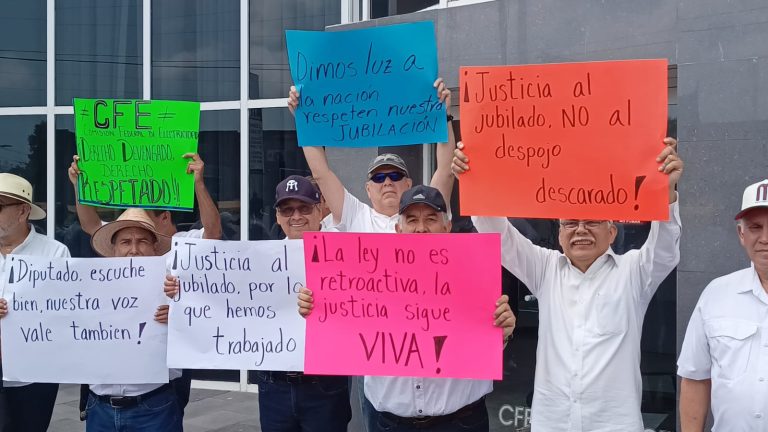 # CFE =
Comisión Federal de Electricidad
Derecho Devengado,
Derecho
Respetado!!!
Dimos luz a
la nación
respeten nuestra
JUBILACIÓN
¡Justicia al
jubilado, NO al
despojo
descarado!
¡Diputado, escuche
bien, nuestra voz
vale tambien!
¡Justicia al
jubilado, por lo
que hemos
trabajado
¡La ley no es
retroactiva, la
justicia sigue
VIVA!
CFE